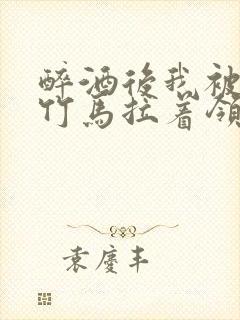 醉酒後我被
竹馬拉着領
袁慶丰